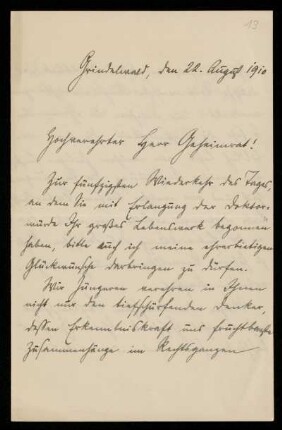 13
Grindelwald, den 22. August 1910
Hochverehrter Herr Geheimrat!
Zur fünfzigsten Wiederkehr des Tages,
an dem Sie mit Erlangung der Doktor-
würde Ihr großes Lebenswerk begonnen
haben, bitte auch ich meine ehrerbietigen
Glückwünsche darbringen zu dürfen.
Wir Jüngeren verehren in Ihnen
nicht nur den tiefschürfenden Denker,
dessen Erkenntniskraft uns fruchtbarste
Zusammenhänge im Rechtsganzen